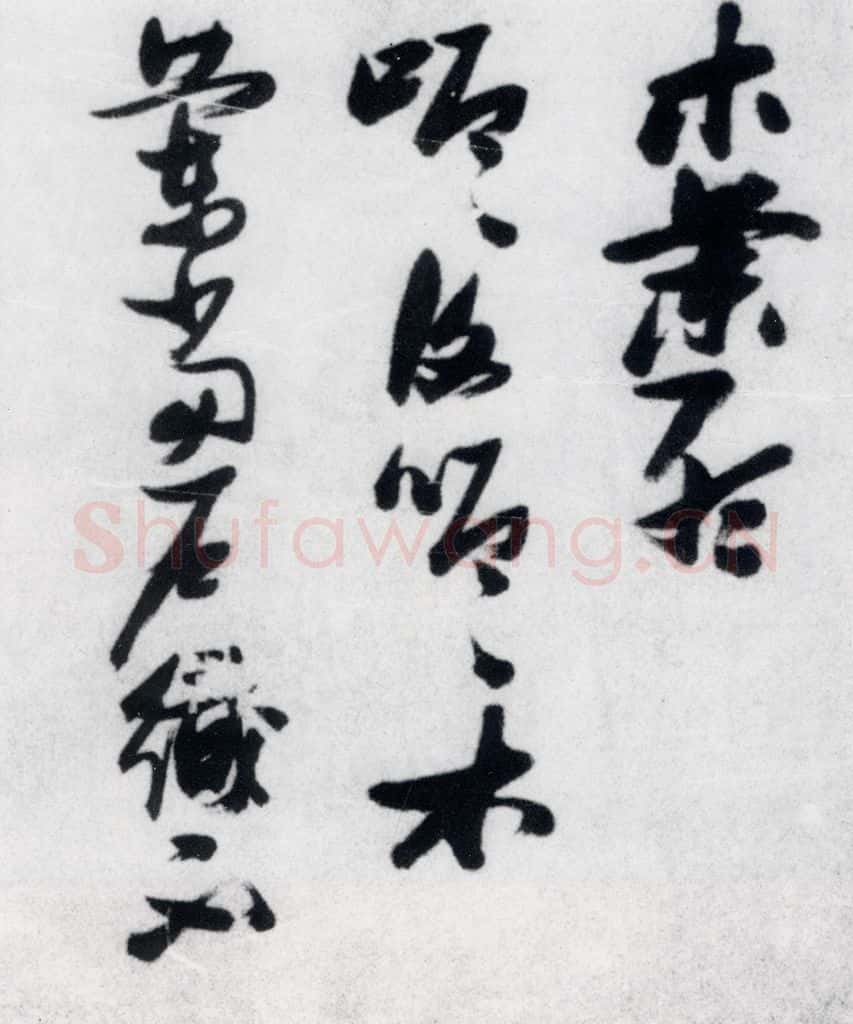 木蘭
唧〻復唧〻木
蘭當户織不
Shufawang.CN